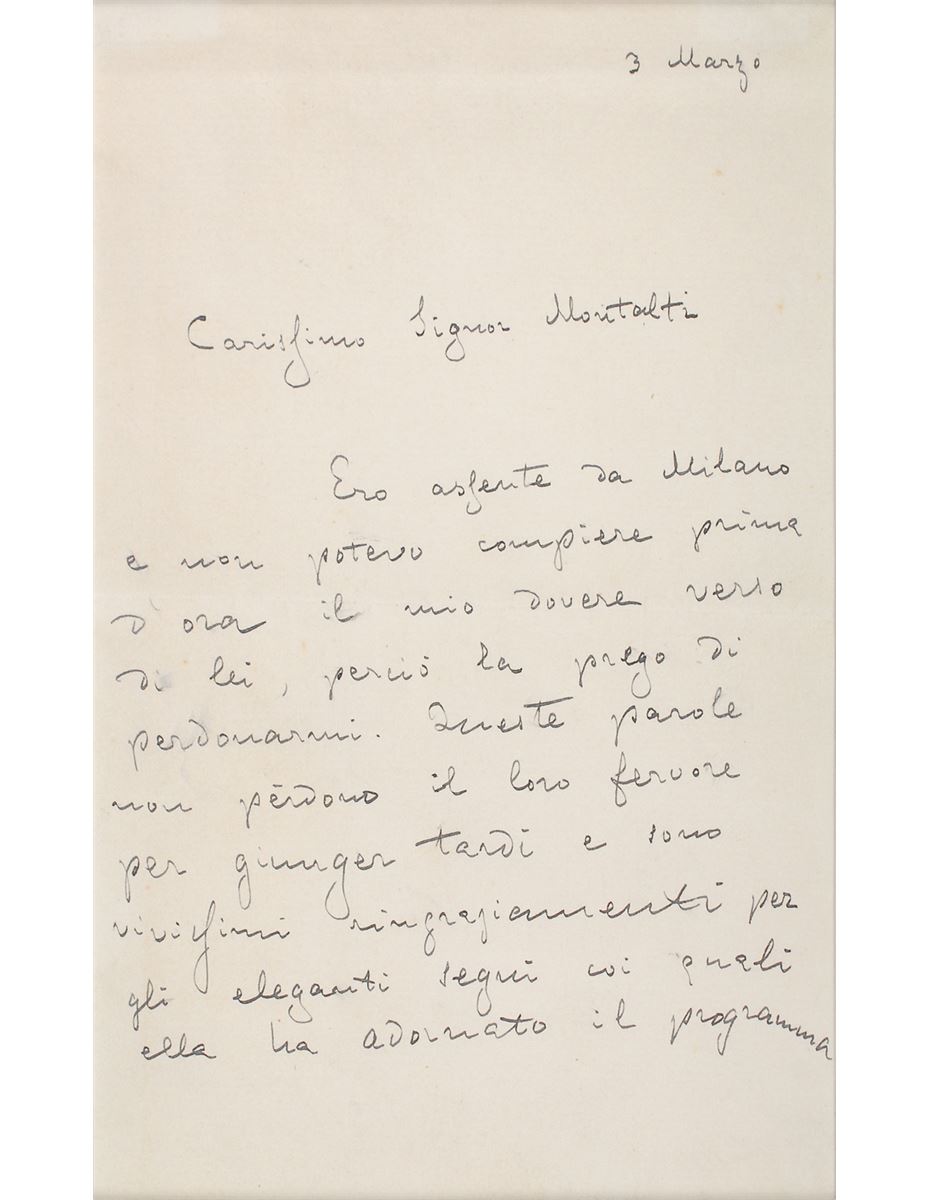 3 Marzo
Carissimo Signor Montalti
Ero assente da Milano
e non potevo compiere prima
d'ora il mio dovere verso
di lei, perciò la prego di
perdonarmi. Queste parole
non pérdono il loro fervore
per giunger tardi e sono
vivissimi ringraziamenti per
gli eleganti segni coi quali
ella ha adornato il programma